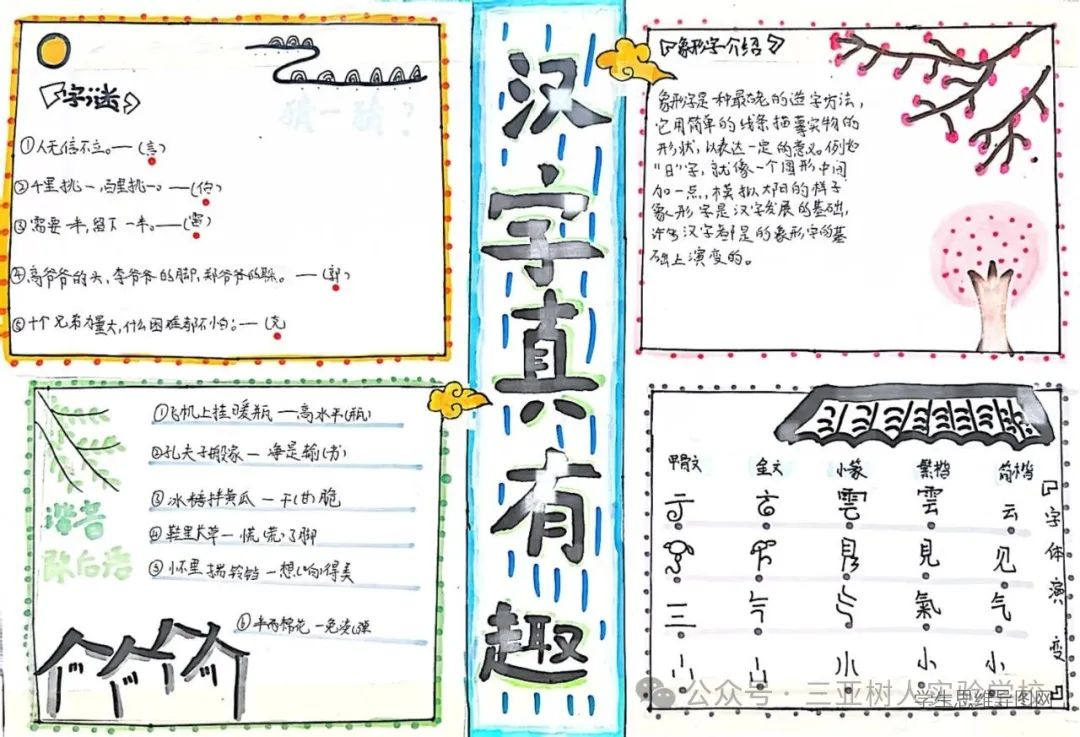 字谜
猜一猜?
①人无信不立。—(言)
②千里挑一,百里挑一。—(伯)
③需要一半,留下一半。—(雷)
④高爷爷的头,李爷爷的脚,郑爷爷的耳。—(郭)
⑤十个兄弟力量大,什么困难都不怕。—(克
谐音
歇后语
①飞机上挂暖瓶—高水平(瓶)
②孔夫子搬家—净是输(书)
③冰糖拌黄瓜—干(甘)脆
④鞋里
—慌
了脚
⑤怀里揣铃铛—想(响)得美
⑥半两棉花—免谈(弹
汉字真有趣
象形字介绍
象形字是一种最
的造字方法,
它用简单的线条描摹实物的
形状,以表达一定的意义。例如
"日"字,就像一个圆形中间
加一点,模拟太阳的样子
象形字是汉字发展的基础,
许多汉字都是的象形字的基
础上演变的。
甲骨文 金文 小篆 繁体 简体
雲 云
見 见
三 氣 气
小 小 小
字体演变
公众号·三亚树人实验学校
学生思维导图网